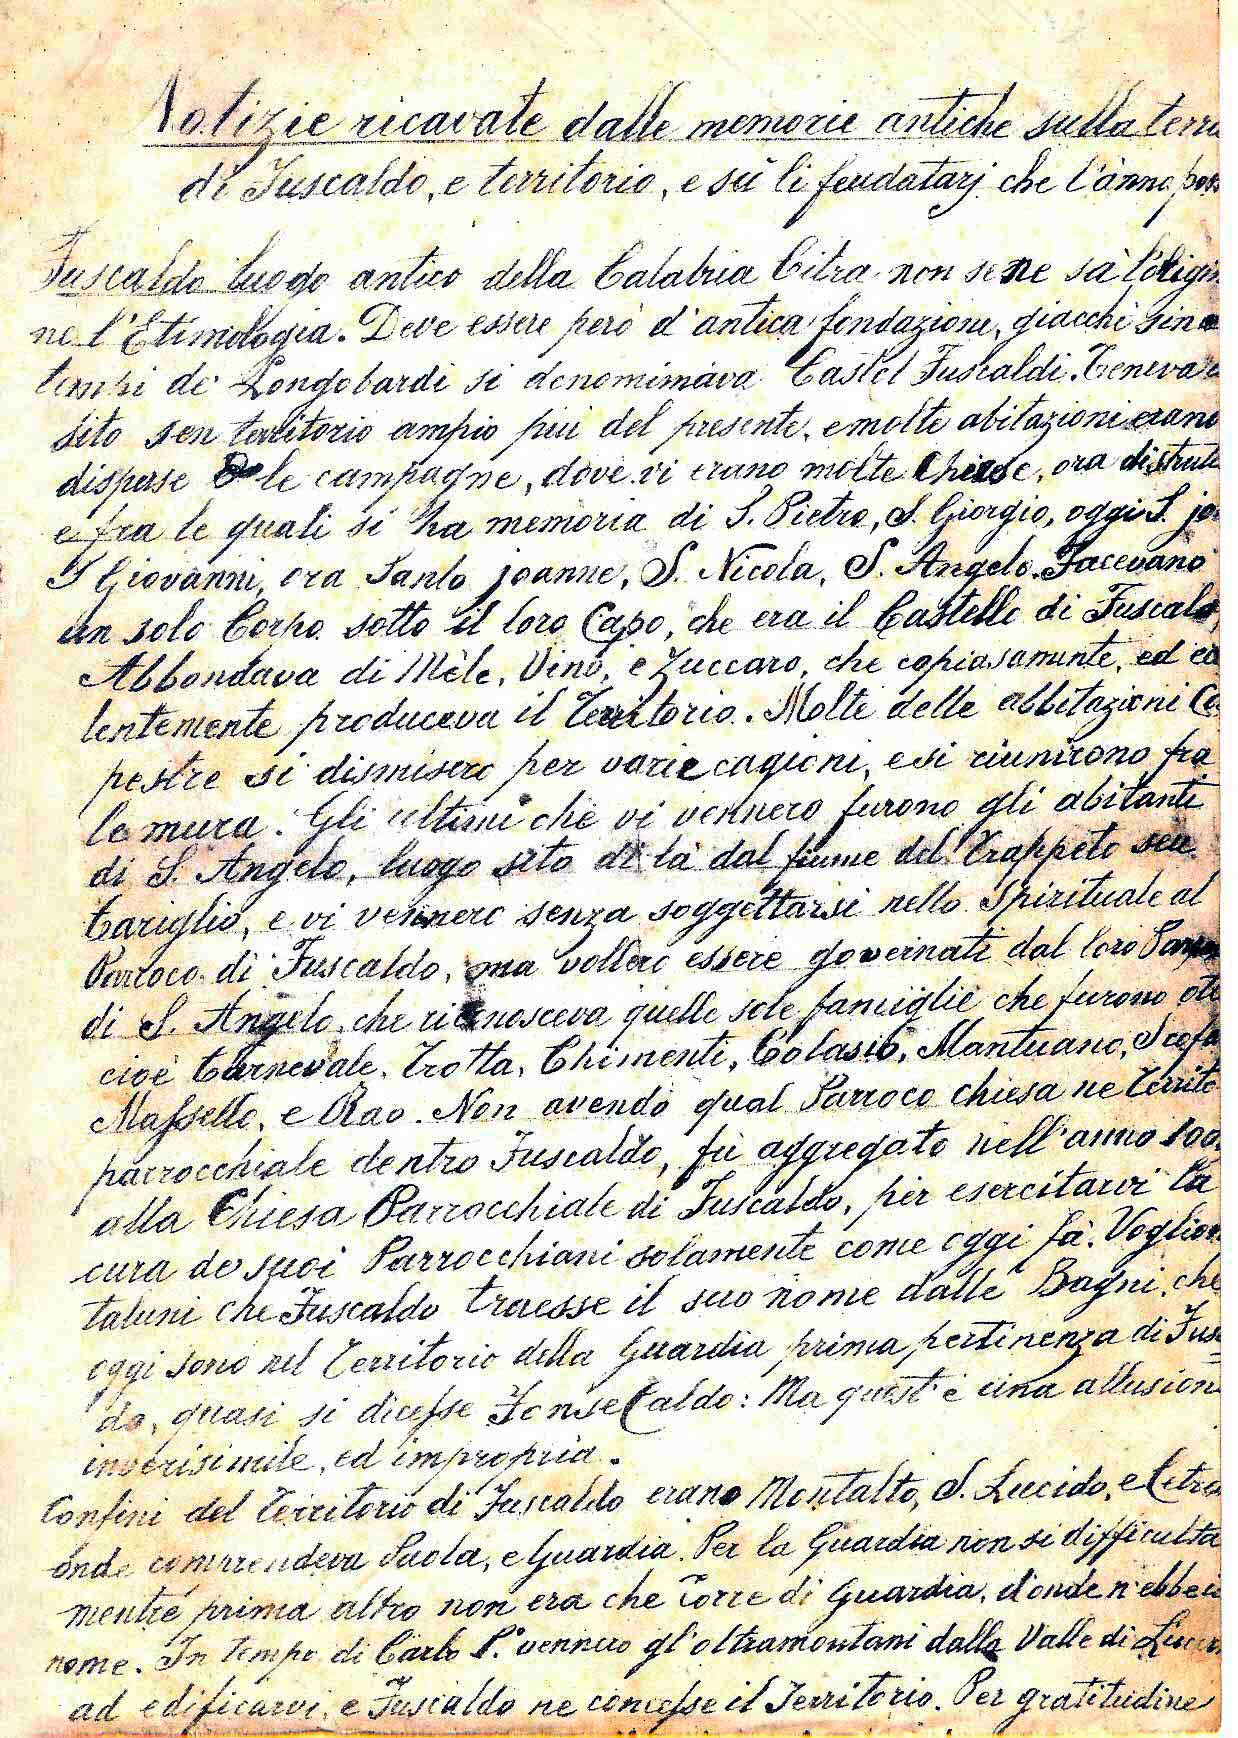 Notizie ricavate dalle memorie antiche sulla terra
di Fuscaldo, e territorio, e sù li feudatarj che l'ànno poss
Fuscaldo luogo antico della Calabria Citra non se ne sà l'origin
ne l'Etimologia. Deve essere però d'antica fondazione, giacchi sino
tempi de' Longobardi si denomimava Castel Fuscaldi. Teneva
sito sen territorio ampio più del presente, e molte abitazioni erano
disperse le campagne, dove vi erano molte Chiese, ora distrutte
e fra le quali si ha memoria di S. Pietro, S. Giorgio, oggi S. jo
S Giovanni, ora Santo joanne, S. Nicola, S. Angelo. Facevano
un solo Corpo sotto il loro Capo, che era il Castello di Fuscaldo,
Abbondava di Mèle, Vino, e Zuccaro, che copiosamente, ed ec
lentemente produceva il Territorio. Molte delle abbitazioni Ca
pestre si dismisero per varie cagioni, e si riunirono fra
le mura. Gli ultimi che vi vennero furono gli abitanti
di S. Angelo, luogo sito di là dal fiume del Trappeto seu
Cariglio, e vi vennero senza soggettarsi nello Spirituale al
Parroco di Fuscaldo, ma vollero essere governati dal loro Parro
di S. Angelo, che riconosceva quelle sole famiglie che furono ott
cioè Carnevale, Trotta, Chimenti, Colasio, Mantuano, Scofa
Massello, e Rao. Non avendo qual Parroco chiesa ne Territo
parrocchiale dentro Fuscaldo, fù aggregato nell'anno
alla Chiesa Parrocchiale di Fuscaldo, per esercitarvi la
cura de suoi Parrocchiani solamente come oggi fà. Voglion
taluni che Fuscaldo traesse il suo nome dalle Bagni, che
oggi sono nel Territorio della Guardia prima pertinenza di Fus=
do, quasi si dicesse Fonse Caldo: Ma quest'è una allusion
inverisimile, ed impropria.
Confini del Territorio di Fuscaldo erano Montalto, S. Lucido, e Cetra
onde comprendeva Paola, e Guardia. Per la Guardia non si difficulta
mentre prima altro non era che Torre di Guardia, d'onde n'ebbe i
nome. In tempo di Carlo P.º vennero gl'oltramontani dalla Valle di Lucer
ad edificarvi, e Fuscaldo ne concesse il Territorio. Per gratitudine